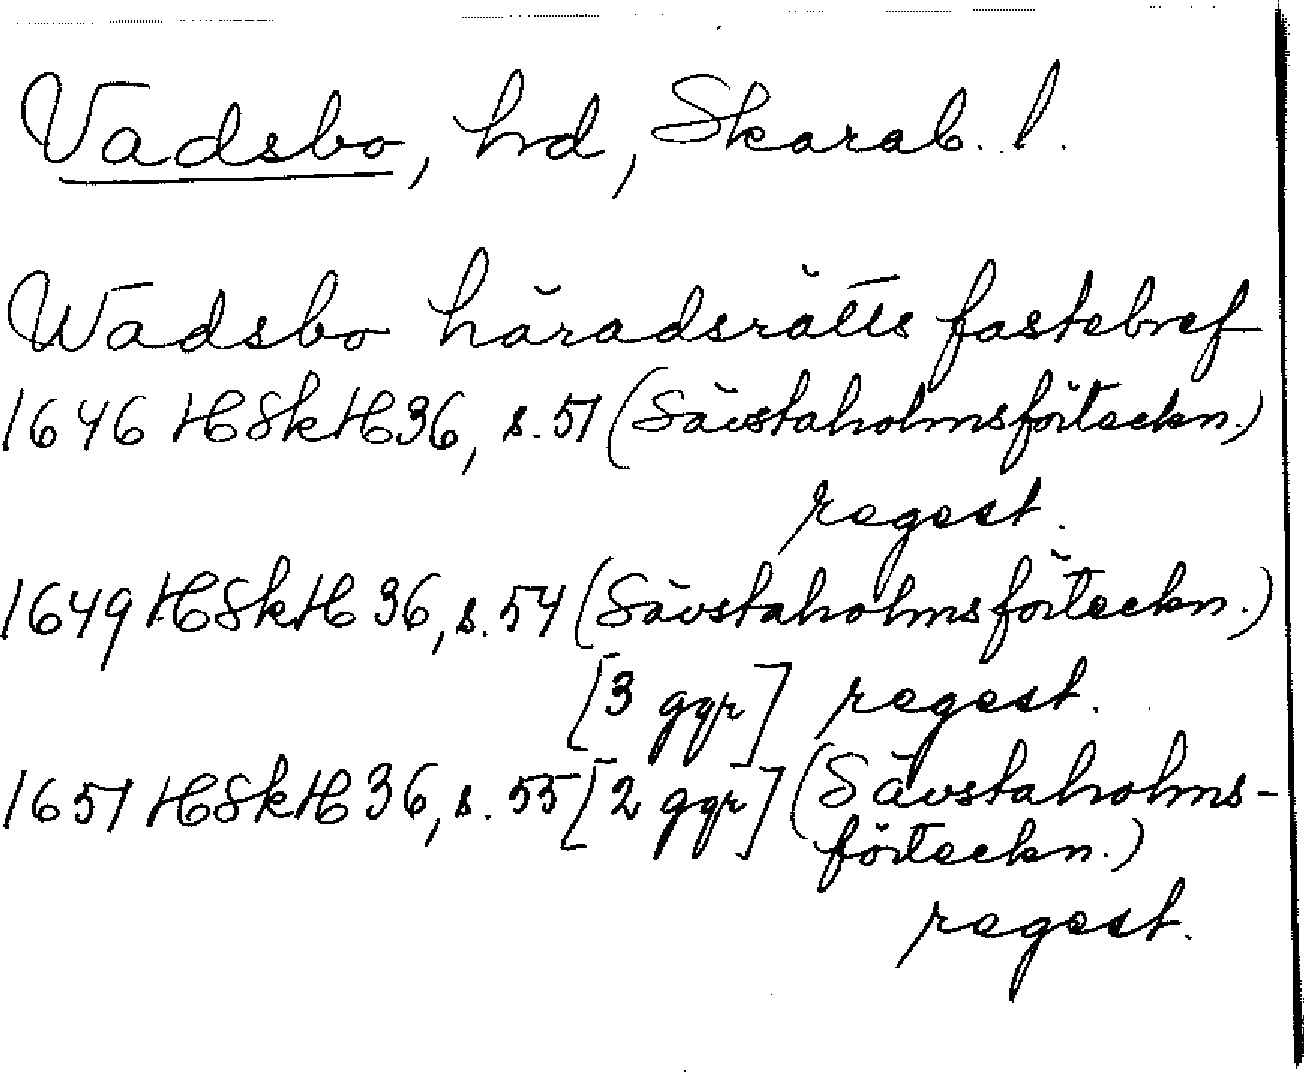 Vadsbo, hd, Skarab. l.
Wadsbo häradsrätts fastebref
1646 HSkH 36, s. 51 (Sävstaholmsförteckn.)
regest.
1649 HSkH 36, s. 54 (Sävstaholmsförteckn.)
[3 ggr] regest.
1651 HSkH 36, s. 55 [2 ggr] (Sävstaholms-
förteckn.)
regest.